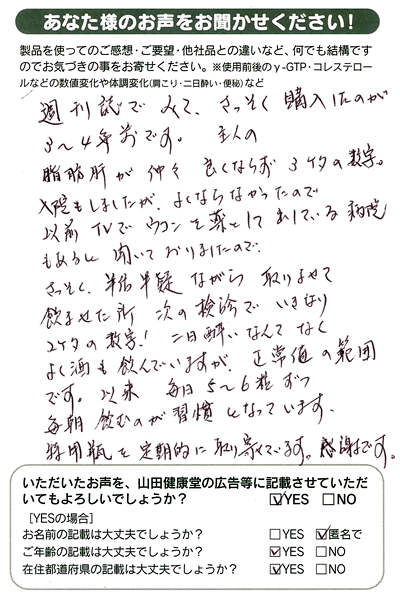 あなた様のお声をお聞かせください！
製品を使ってのご感想・ご要望・他社品との違いなど、何でも結構です
のでお気づきの事をお寄せください。※使用前後のγ-GTP・コレステロー
ルなどの数値変化や体調変化(肩こり・二日酔い・便秘)など
週刊誌でみて、さっそく購入したのが
3〜4年前です。 主人の
脂肪肝が仲々良くならず3ケタの数字。
入院もしましたが、よくならなかったので
以前TVでウコンを薬として出している病院
もあると聞いておりましたので、
さっそく、半信半疑ながら取りよせて
飲ませた所 次の検診でいきなり
2ケタの数字！ 二日酔いなんてなく
よく酒も飲んでいますが、正常値の範囲
です。以来 毎日5〜6粒ずつ
毎朝飲むのが習慣となっています。
徳用瓶を定期的に取り寄せています。感謝です。
いただいたお声を、山田健康堂の広告等に記載させていただ
いてもよろしいでしょうか？ ☑YES □NO
［YESの場合］
お名前の記載は大丈夫でしょうか？ □YES ☑匿名で
ご年齢の記載は大丈夫でしょうか？ ☑YES □NO
在住都道府県の記載は大丈夫でしょうか？ ☑YES □NO